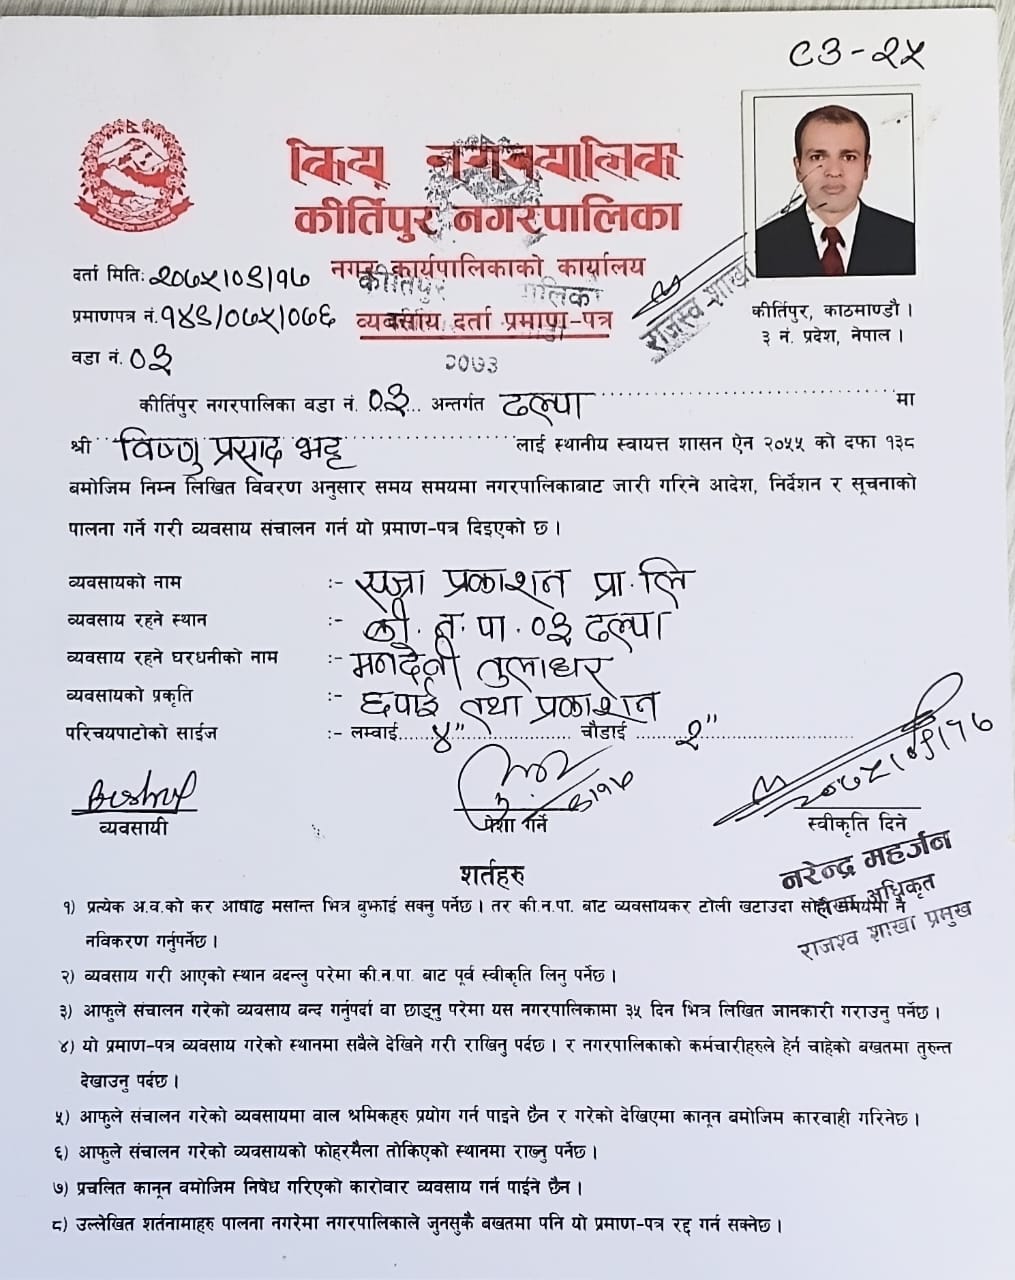 ८३-२५
कीर्तिपुर नगरपालिका
नगर कार्यपालिकाको कार्यालय
व्यवसाय दर्ता प्रमाण-पत्र
२०७३
राजस्व शाखा
कीर्तिपुर, काठमाण्डौ ।
३ नं. प्रदेश, नेपाल ।
दर्ता मितिः २०७५/०९/१७
प्रमाणपत्र नं. १४९/०७५/०७६
वडा नं. ०३
कीर्तिपुर नगरपालिका वडा नं. ०३ अन्तर्गत ढल्पा मा
श्री विष्णु प्रसाद भट्ट लाई स्थानीय स्वायत्त शासन ऐन २०५५ को दफा १३८
बमोजिम निम्न लिखित विवरण अनुसार समय समयमा नगरपालिकाबाट जारी गरिने आदेश, निर्देशन र सूचनाको
पालना गर्ने गरी व्यवसाय संचालन गर्न यो प्रमाण-पत्र दिइएको छ ।
व्यवसायको नाम :- प्रकाशन प्रा. लि
व्यवसाय रहने स्थान :- की. न. पा. ०३ ढल्पा
व्यवसाय रहने घरधनीको नाम :- मनदेवी तुलाधर
व्यवसायको प्रकृति :- छपाई तथा प्रकाशन
परिचयपाटोको साईज :- लम्वाई ४" चौडाई २"
व्यवसायी
पेश गर्ने
२०७५/०९/१७
स्वीकृति दिने
नरेन्द्र महर्जन
अधिकृत
राजश्व शाखा प्रमुख
शर्तहरु
१) प्रत्येक आ.व.को कर आषाढ मसान्त भित्र बुझाई सक्नु पर्नेछ । तर की.न.पा. बाट व्यवसायकर टोली खटाउदा सोही समयमा नै
नविकरण गर्नुपर्नेछ ।
२) व्यवसाय गरी आएको स्थान बदल्नु परेमा की.न.पा. बाट पूर्व स्वीकृति लिनु पर्नेछ ।
३) आफुले संचालन गरेको व्यवसाय बन्द गर्नुपर्दा वा छाड्नु परेमा यस नगरपालिकामा ३५ दिन भित्र लिखित जानकारी गराउनु पर्नेछ ।
४) यो प्रमाण-पत्र व्यवसाय गरेको स्थानमा सबैले देखिने गरी राखिनु पर्दछ । र नगरपालिकाको कर्मचारीहरुले हेर्न चाहेको बखतमा तुरुन्त
देखाउनु पर्दछ ।
५) आफुले संचालन गरेको व्यवसायमा वाल श्रमिकहरु प्रयोग गर्न पाइने छैन र गरेको देखिएमा कानून बमोजिम कारवाही गरिनेछ ।
६) आफुले संचालन गरेको व्यवसायको फोहरमैला तोकिएको स्थानमा राख्नु पर्नेछ ।
७) प्रचलित कानून वमोजिम निषेध गरिएको कारोवार व्यवसाय गर्न पाईने छैन ।
८) उल्लेखित शर्तनामाहरु पालना नगरेमा नगरपालिकाले जुनसुकै बखतमा पनि यो प्रमाण-पत्र रद्द गर्न सक्नेछ ।